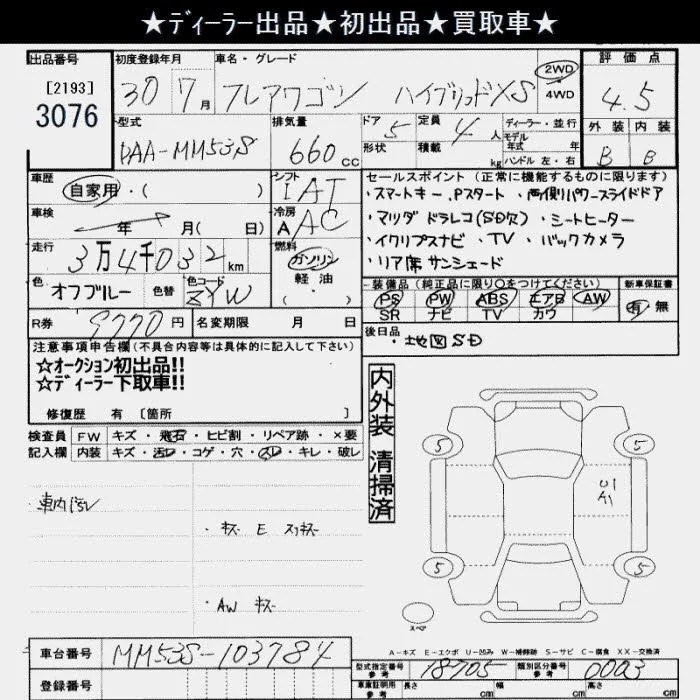 ★ディーラー出品★初出品★買取車★
出品番号
[2193]
3076
初度登録年月
30 7月
車名・グレード
フレアワゴン ハイブリッドXS
2WD
4WD
評価点
4.5
外装 内装
B B
型式
DAA-MM53S
排気量
660cc
ドア 5
形状
定員 4人
積載 kg
ディーラー・並行
モデル
年式 年
ハンドル 左・右
車歴
自家用・( )
シフト
IAT
車検
年 月( 日)
冷房
A AC
走行
3万4千032km
燃料
ガソリン
軽油
・( )
色
オフブルー
色替
色コード
ZYW
R券 9770円
名変期限 月 日
セールスポイント(正常に機能するものに限ります)
・スマートキー、Pスタート ・両側パワースライドドア
・マツダ ドラレコ(SD欠)・シートヒーター
・イクリプスナビ、TV、バックカメラ
・リア席サンシェード
装備品(純正品に限り○をつけてください)
PS PW ABS エアB AW
SR ナビ TV カワ
新車保証書
有 無
後日品
・地図SD
注意事項申告欄(不具合内容等は具体的に記入して下さい)
☆オークション初出品!!
☆ディーラー下取車!!
修復歴 有 [箇所 ]
検査員
記入欄
FW キズ・飛石・ヒビ割・リペア跡・×要
内装 キズ・汚レ・コゲ・穴・スレ・キレ・破レ
車内汚レ
・キズ E スリキズ
・AW キズ
内外装 清掃済
5 5
U1
A1
5 5
スペア
A-キズ E-エクボ U-凹み W-補修跡 S-サビ C-腐食 XX-交換済
車台番号 MM53S-103784
登録番号
型式指定番号
参考
18705
類別区分番号
参考
0003
車庫証明用
参考
長さ cm 幅 cm 高さ cm